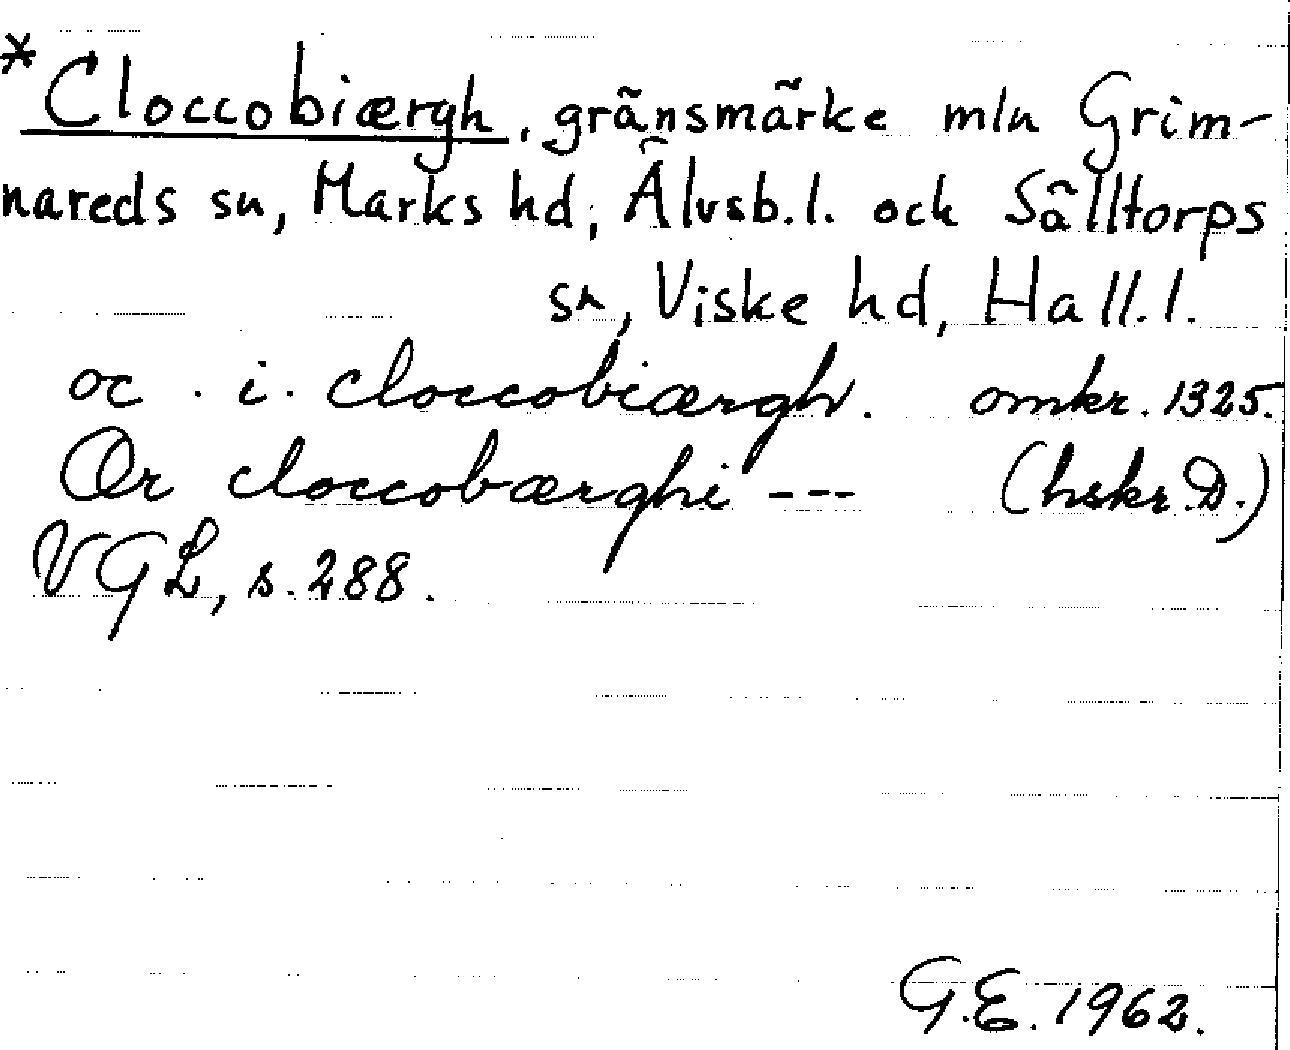 *Cloccobiærgh, gränsmärke mln Grim-
nareds sn, Marks hd, Älvsb.l. och Sälltorps
sn, Viske hd, Hall.l.
oc . i . cloccobiærgh. omkr. 1325.
Ær cloccobærghi --- (hskr. D.)
VGL, s. 288.
G.E. 1962.